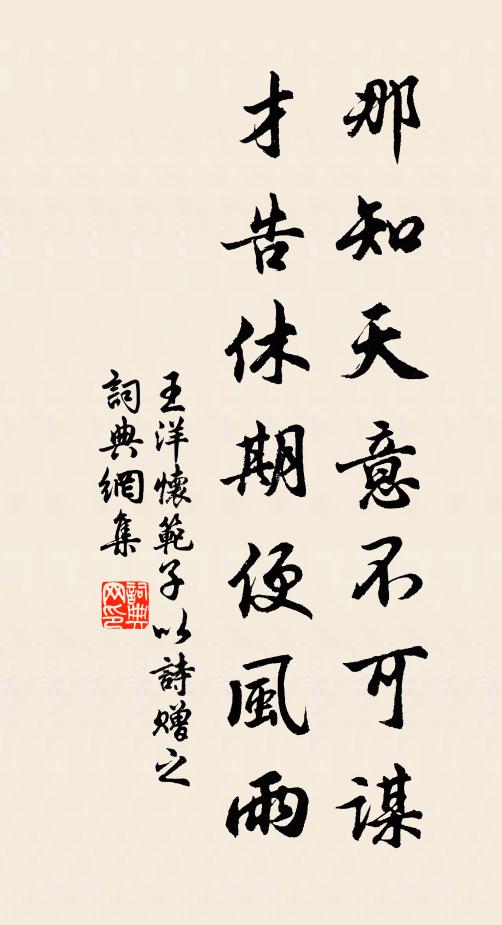 那知天意不可謀
才告休期便風雨
王洋懷範子以詩贈之
詞典網集
詞典网印